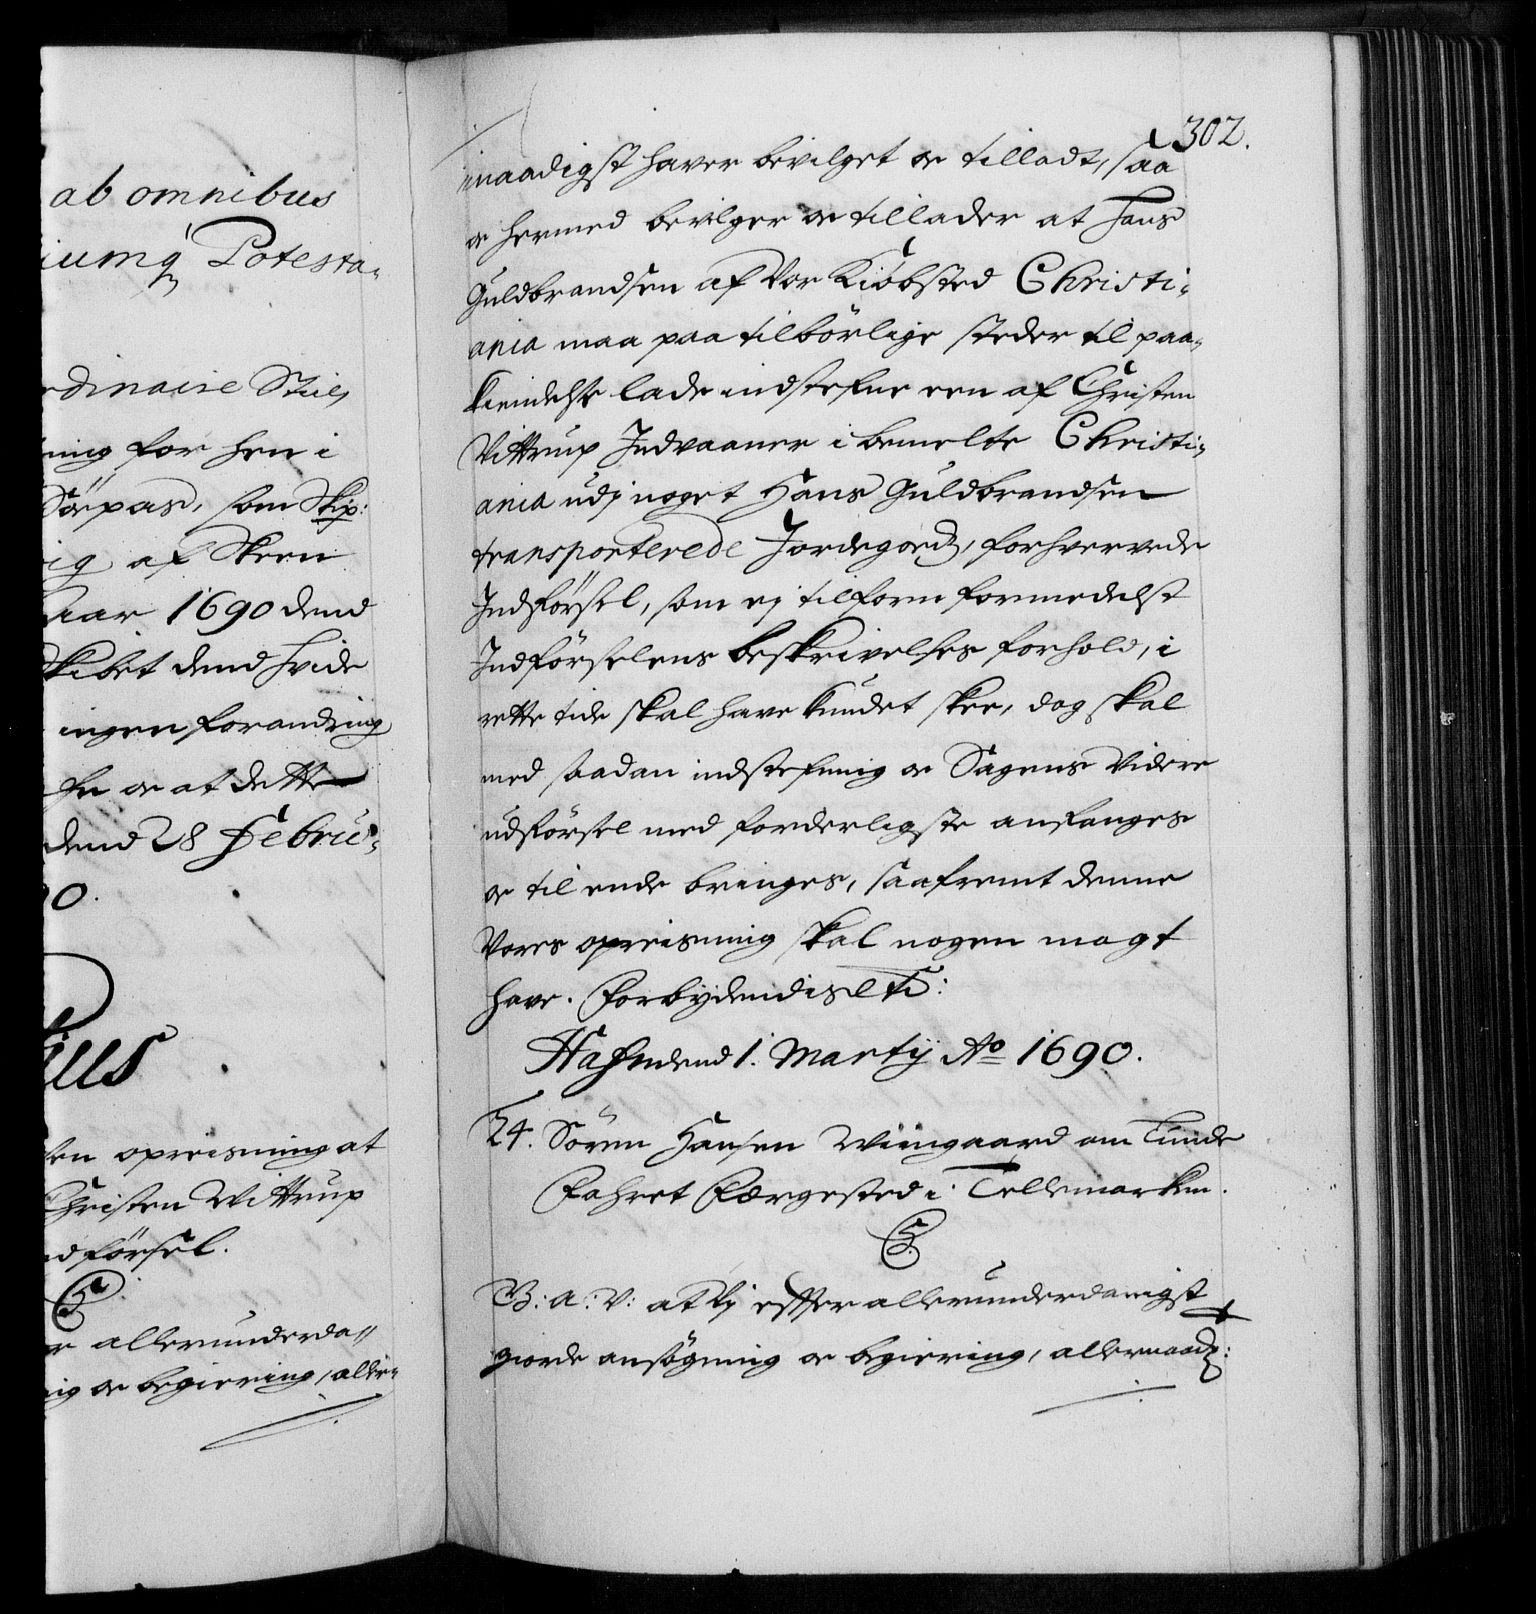 ab omnibus
iumq Potesta-
rdinaire Stiil,
ning for hen i
Söepas, som Skip:
ig af Skeen
aar 1690 dend
Skibet dend hvide
ingen forandring
og at dette
dend 28 Febru-
90.
sen opreisning at
Christen Wittrup
ndförsel.
C5.
er allerunderda-
nig og begiering, aller-
302.
naadigst haver bevilget og tilladt, saa
og hermed bevilger og tillader at Hans
Guldbrandsen af Vor Kiöbsted Christi-
ania maa paa tilbörlige steder til paa-
kiendelse lade indstefne een af Christen
Vittrup Indvaaner i bemelte Christi-
ania udj noget Hans Guldbrandsen
transporterede Jordegoedz, forhvervede
Indförsel, som ej tilforn formedelst
Indförselens beskrivelses forhold, i
rette tide skal have kundet skee, dog skal
med saadan indstefning og Sagens Videre
udförsel med forderligste anfanges
og til ende bringes, saafremt denne
Vores opreisning skal nogen magt
have. Forbydendis etc:
Hafn dend 1. Martij Ao 1690.
24. Sören Hansen Wiingaard om Tinde
Fahret Færgested i Tellemarken.
C5.
G: A: V: at Vj efter allerunderdanigst
giorde ansögning og begiering, allernaadg: